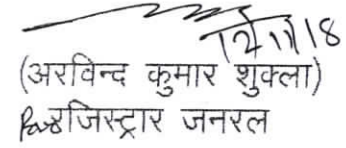 12/11/18
(अरविन्द कुमार शुक्ला)
रजिस्ट्रार जनरल